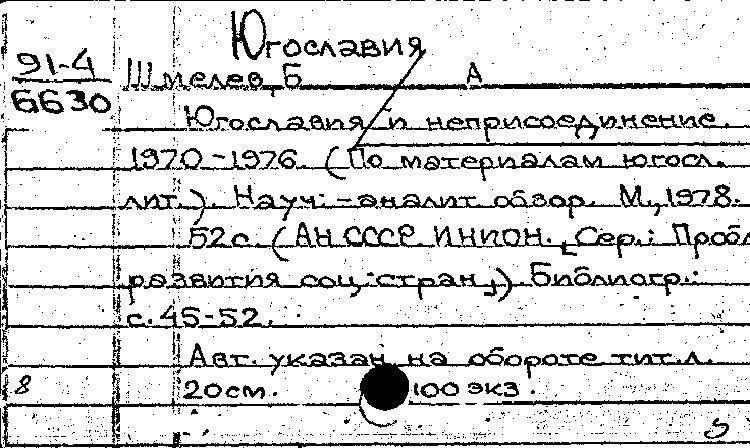 Югославия
91-4
6630
Шмелев, Б А
Югославия и неприсоединение.
1970-1976. (По материалам югосл.
лит.). Науч.-аналит обзор. М., 1978.
52с. (АН СССР. ИНИОН. [Сер.: Пробл
развития соц. стран]). Библиогр.:
с. 45-52.
Авт. указан на обороте тит. л.
8 20см. 100 экз.